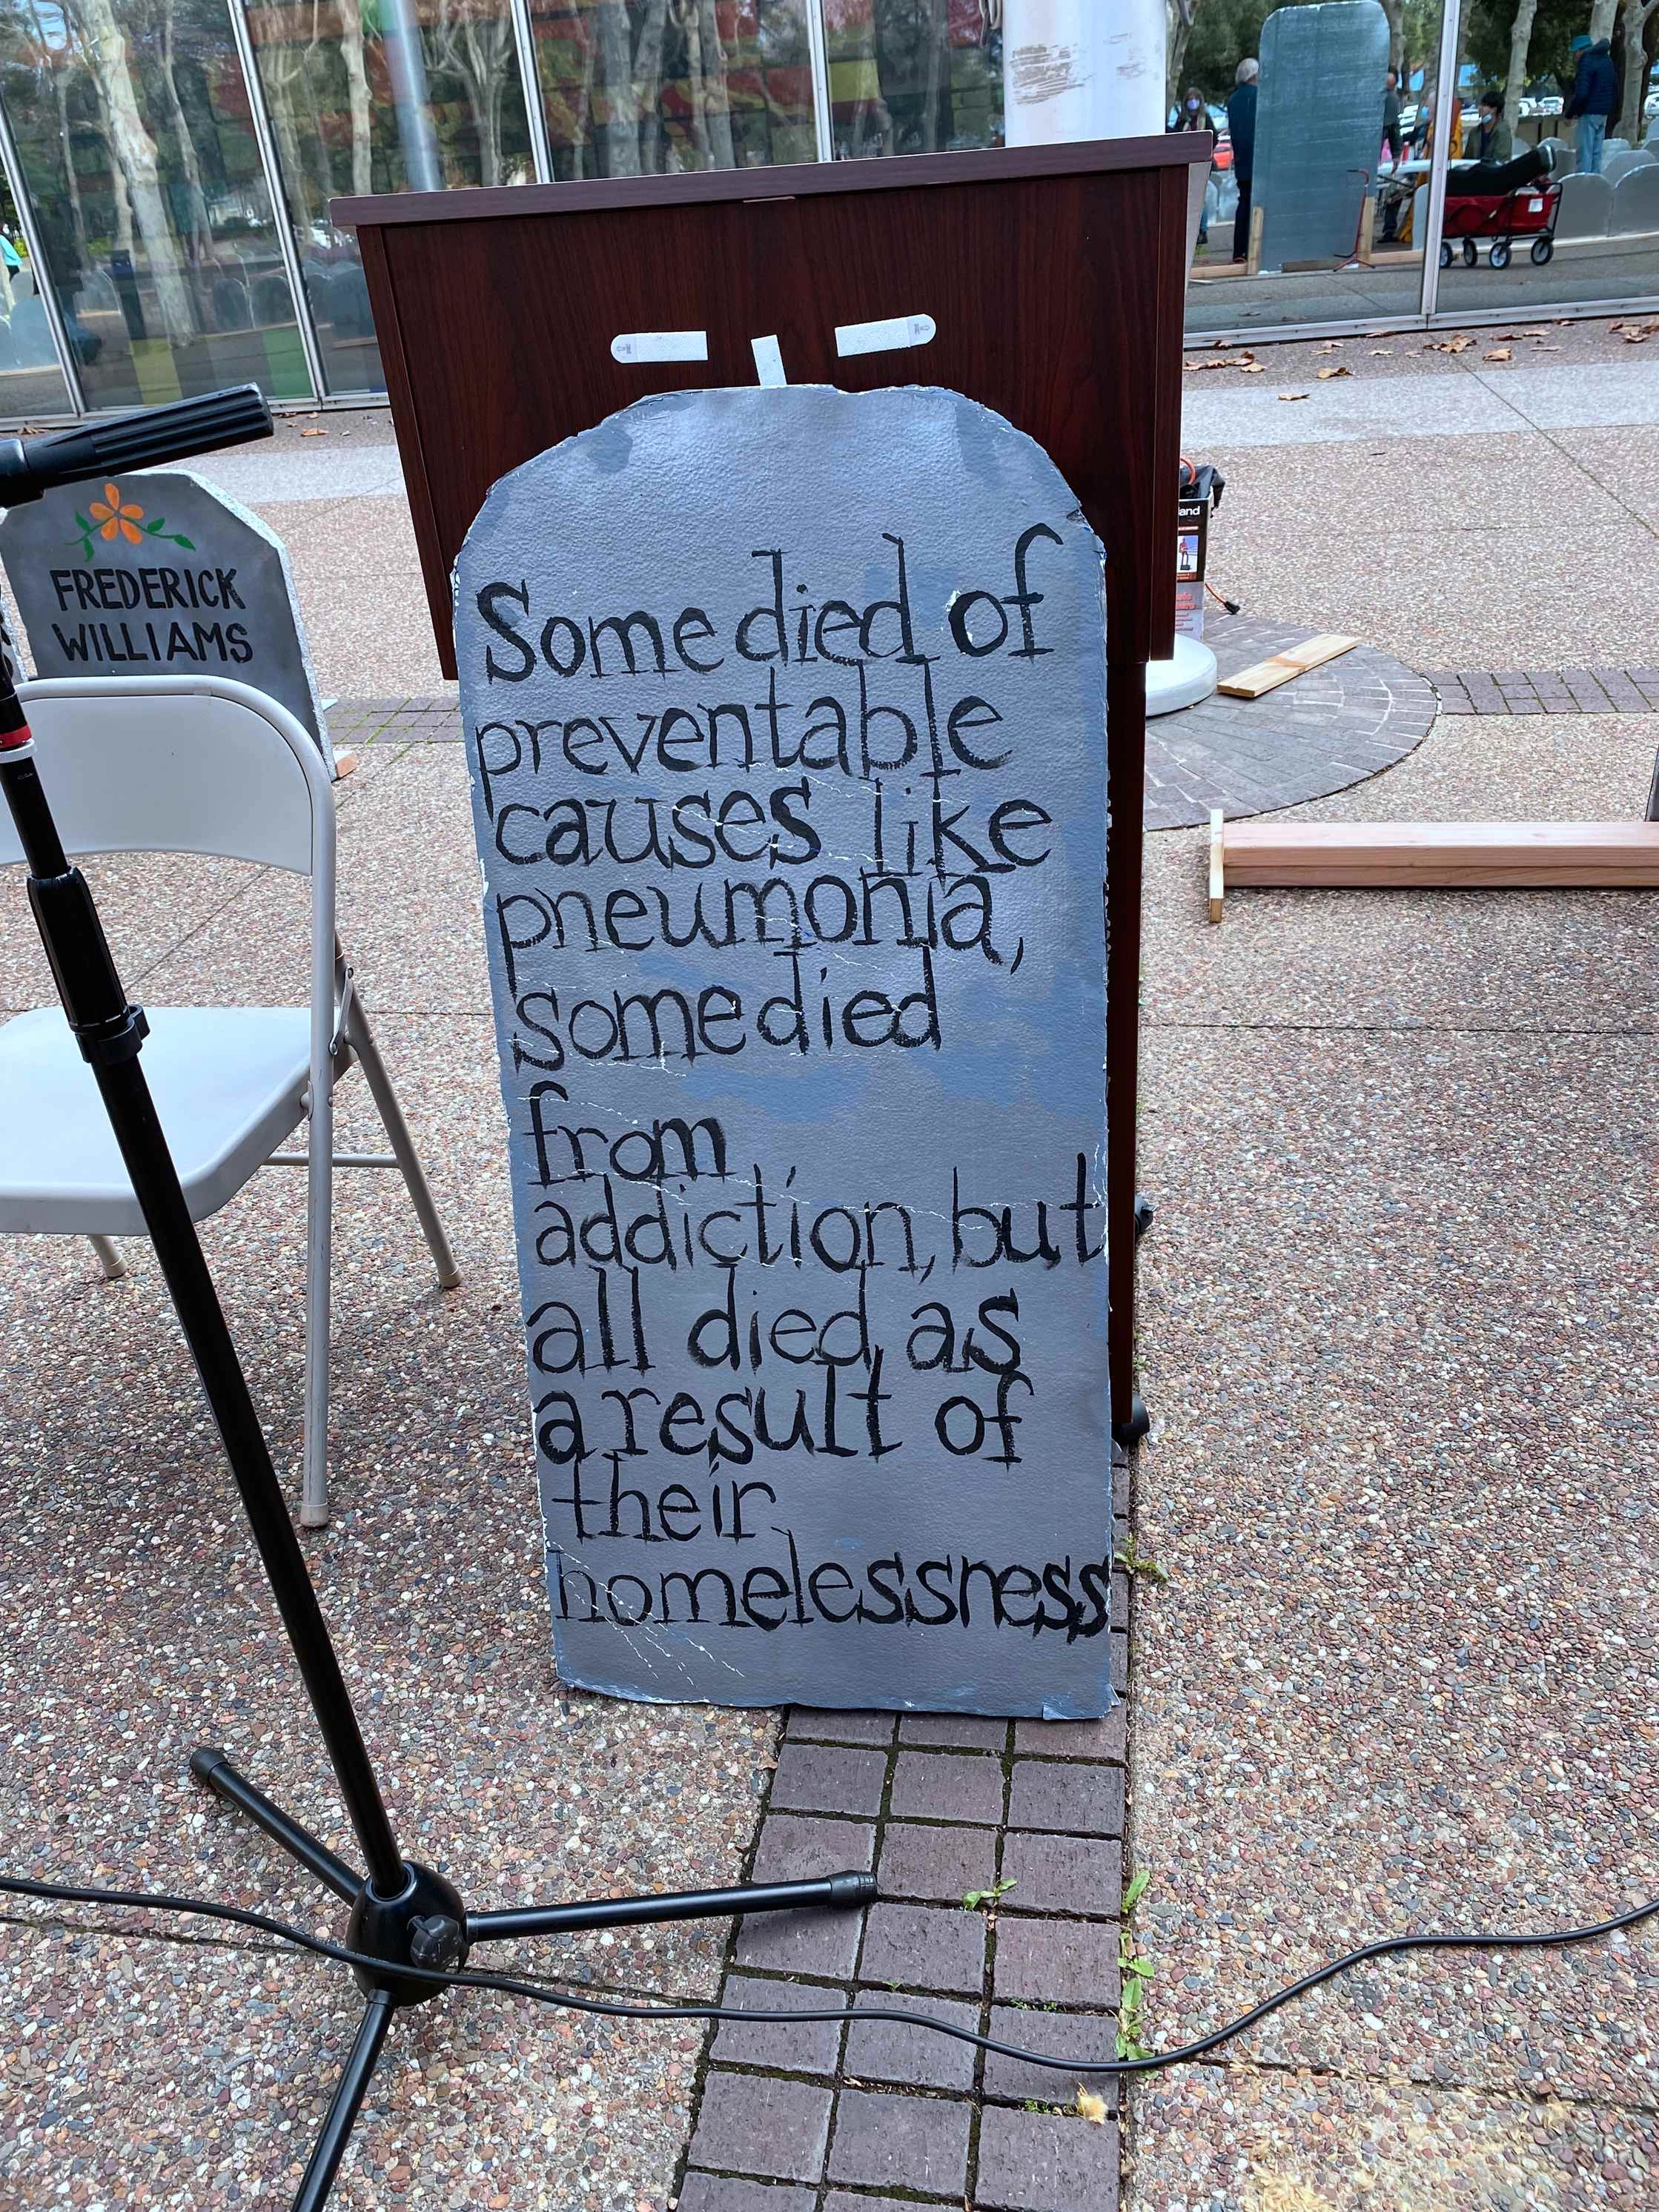 FREDERICK
WILLIAMS
Some died of
preventable
causes like
pneumonia,
some died
from
addiction, but
all died as
a result of
their
homelessness
and